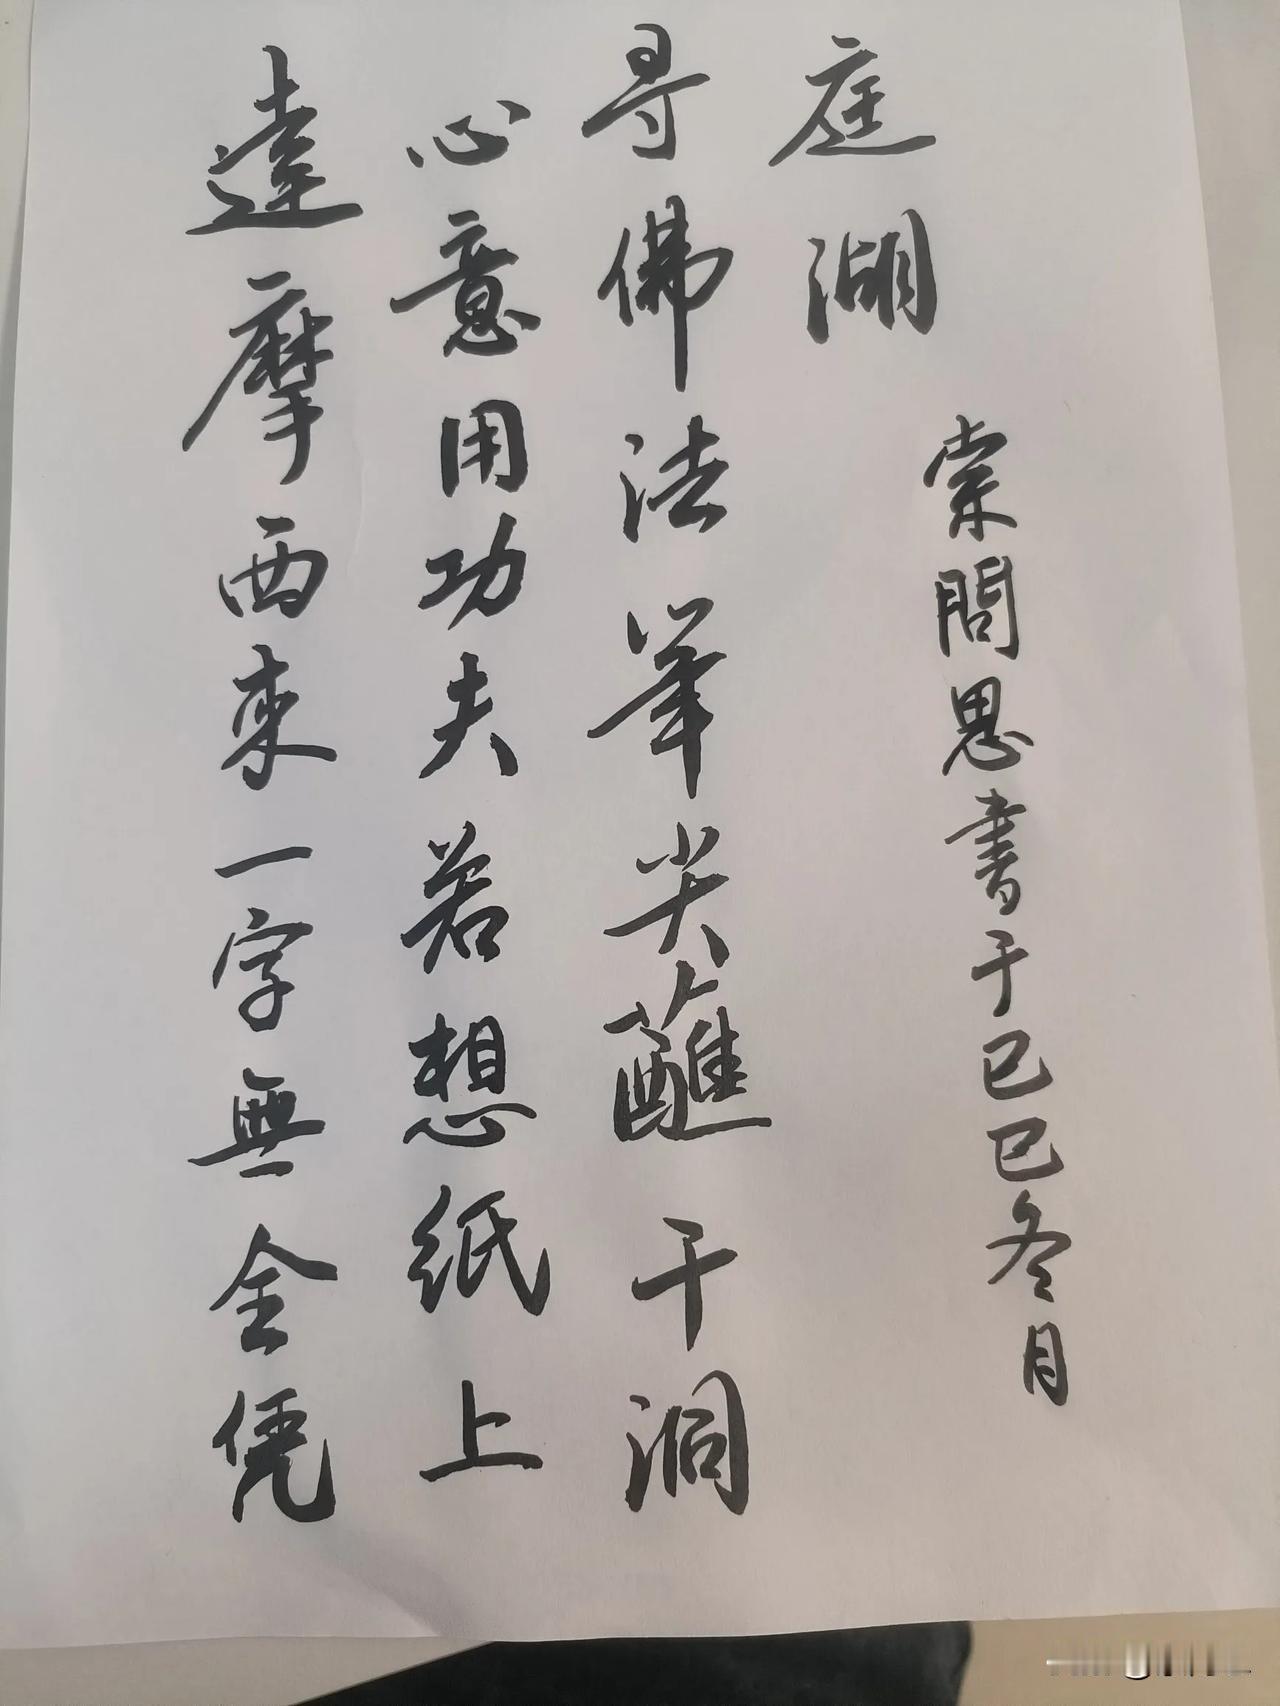 達摩西来一字無全凭
心意用功夫若想纸上
寻佛法筆尖蘸干洞
庭湖
索問思書于己巳冬月